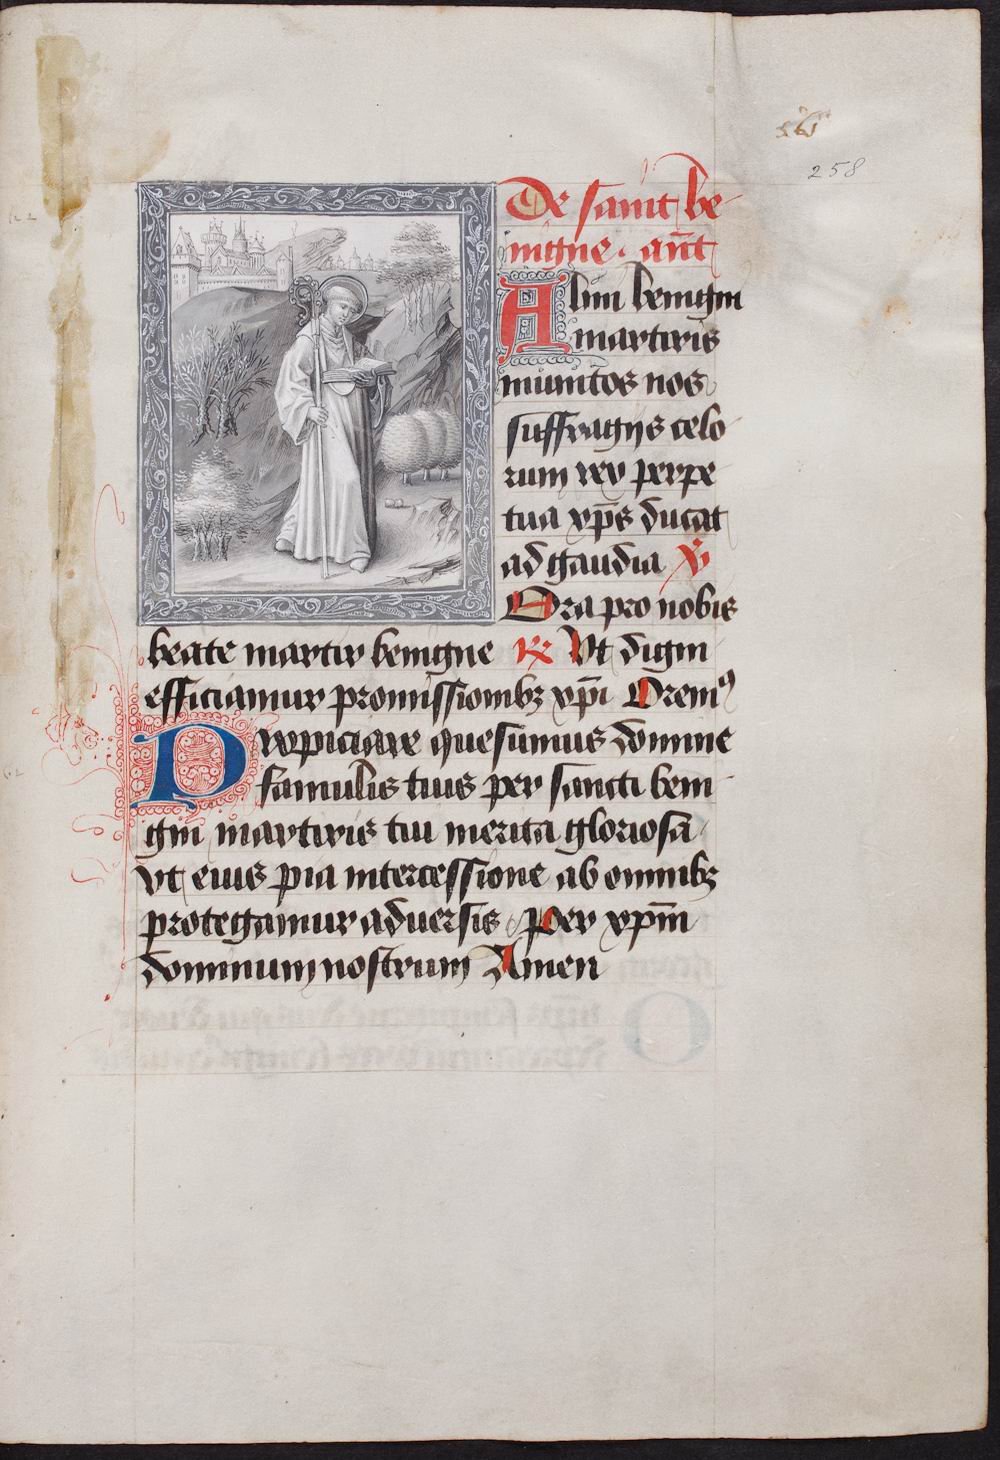 258
De saint be
nigne. ant̄
Alm benigni
martiris
munitos nos
suffragijs celo
rum rex perpe
tua xp̄s ducat
ad gaudia ℣
Ora pro nobis
beate martir benigne ℟ Vt digni
efficiamur promissionibꝫ xp̄i Oremꝰ
Propiciare quesumus domine
famulis tuis per sancti beni
gni martiris tui merita gloriosa
vt eius pia intercessione ab omnibꝫ
protegamur aduersis Per xp̄m
dominum nostrum Amen